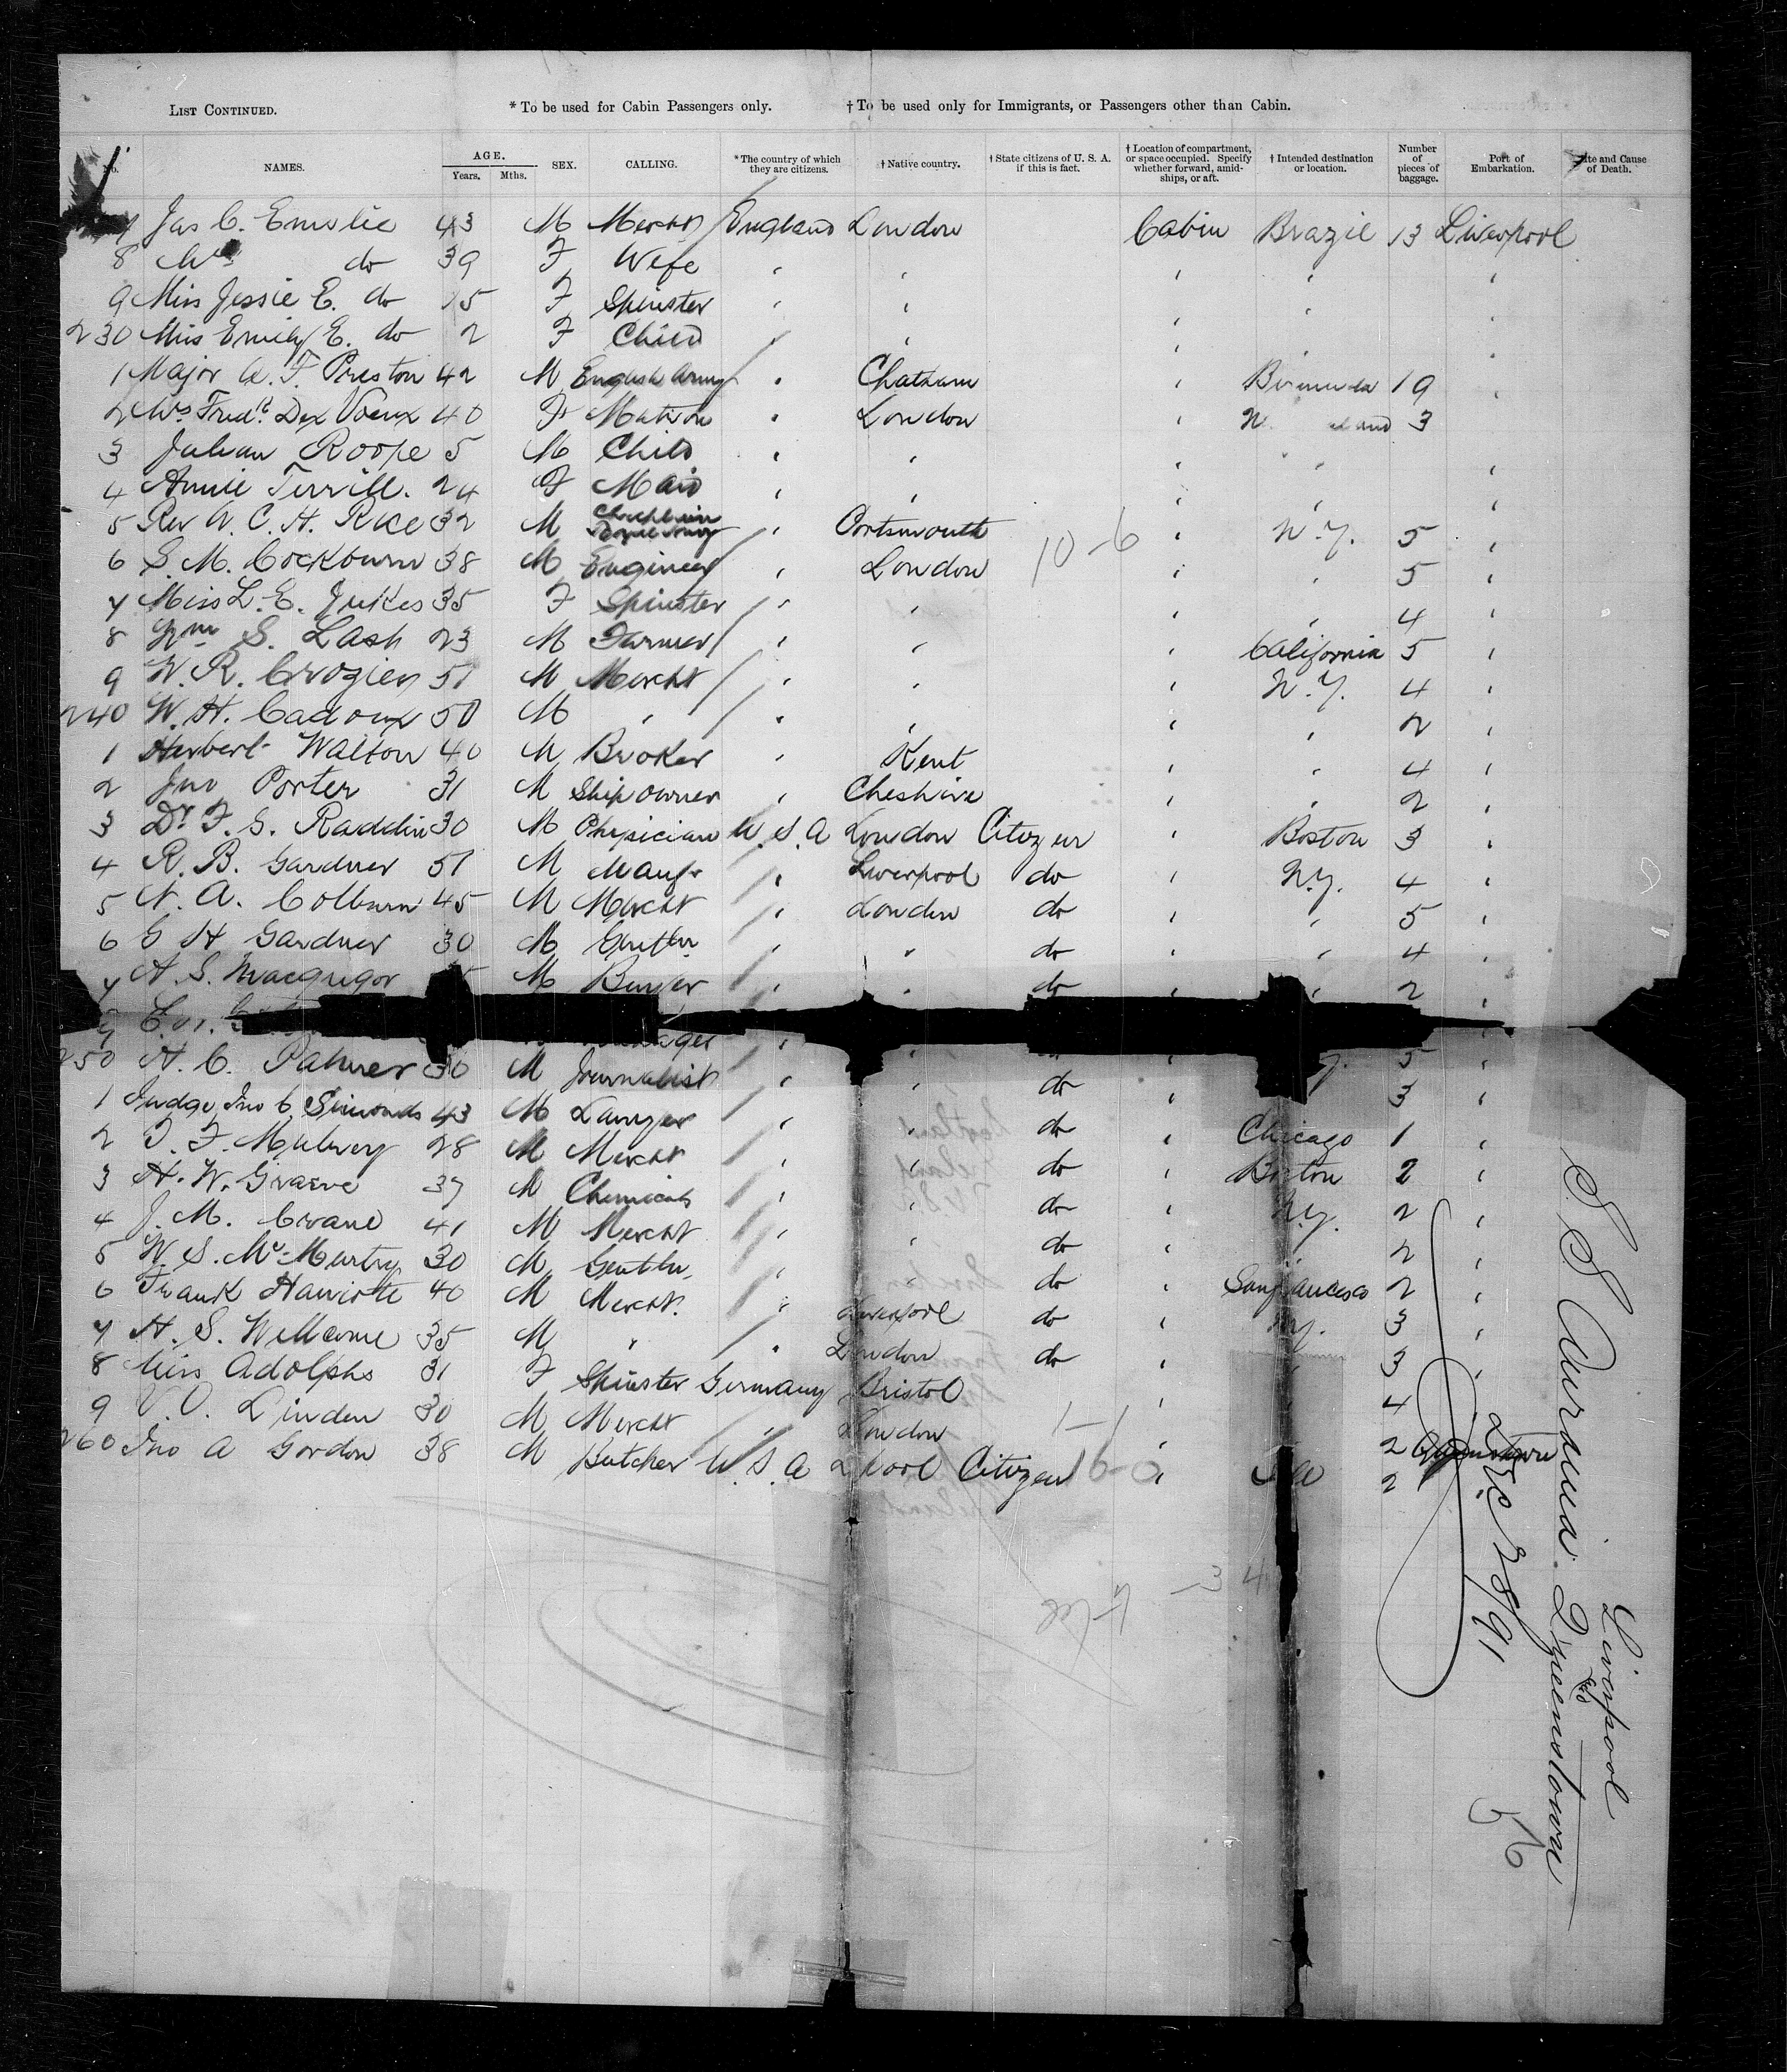 LIST CONTINUED. * To be used for Cabin Passengers only. † To be used only for Immigrants, or Passengers other than Cabin.
No. NAMES. AGE. Years. Mths. SEX. CALLING. * The country of which they are citizens. † Native country. † State citizens of U. S. A. if this is fact. † Location of compartment, or space occupied. Specify whether forward, amidships, or aft. † Intended destination or location. Number of pieces of baggage. Port of Embarkation. Date and Cause of Death.
7 Jas C. Emslie 43 M Mercht England London Cabin Brazil 13 Liverpool
8 Mrs do 39 F Wife " " " " "
9 Miss Jessie E. do 15 F Spinster " " " "
230 Miss Emily E. do 2 F Child " " " "
1 Major A. F. Preston 42 M English Army " Chatham " Bermuda 19 "
2 Mrs Fredk Des Voeux 40 F Matron " London " 3
3 Julian Roope 5 M Child " " " " "
4 Annie Terrill. 24 F Maid " " " " "
5 Rev A. C. H. Rice 32 M " Portsmouth " N.Y. 5 "
6 S. M. Cockburn 38 M Engineer " London 10-6 " " 5 "
7 Miss L. E. Jukes 35 F Spinster " " " " 4
8 Wm S. Lash 23 M Farmer " " " California 5 "
9 W. R. Crozier 51 M Mercht " " " N.Y. 4 "
240 W. H. Cadoux 50 M " " " " " 2 "
1 Herbert Walton 40 M Broker " Kent " " 4 "
2 Jno Porter 31 M Ship owner " Cheshire " " 2 "
3 Dr F. S. Raddin 30 M Physician U.S.A London Citizen " Boston 3 "
4 R. B. Gardner 51 M Manfr " Liverpool do " N.Y. 4 "
5 N. A. Colburn 45 M Mercht " London do " " 5 "
6 G H Gardner 30 M Gentln " " do " " 4 "
7 A. S. Macgregor M " " do " " 2 "
250 H. C. Palmer 30 M Journalist " " do " 3 "
1 Judge Jno C. Simonds 43 M Lawyer " " do " Chicago 1 "
2 T. F. Mulvey 28 M Mercht " " do " Boston 2 "
3 H. W. Graeve 37 M Chemicals " " do " N.Y. 2 "
4 J. M. Crane 41 M Mercht " " do " " 2 "
5 W. S. McMurtry 30 M Gentln. " " do " San Francisco 2 "
6 Frank 40 M Mercht. " Liverpool do " N.Y. 3 "
7 H. S. Wellcome 35 M " " London do " " 3 "
8 Miss Adolphs 31 F Spinster Germany Bristol " 4
9 V. O. Linden 30 M Mercht " London 1-1 " 2 Queenstown
260 Jno A Gordon 38 M Butcher U.S.A L'pool Citizen 16-0 " 2
34
S.S. Aurania.
Liverpool
& Queenstown
Dec 28/91